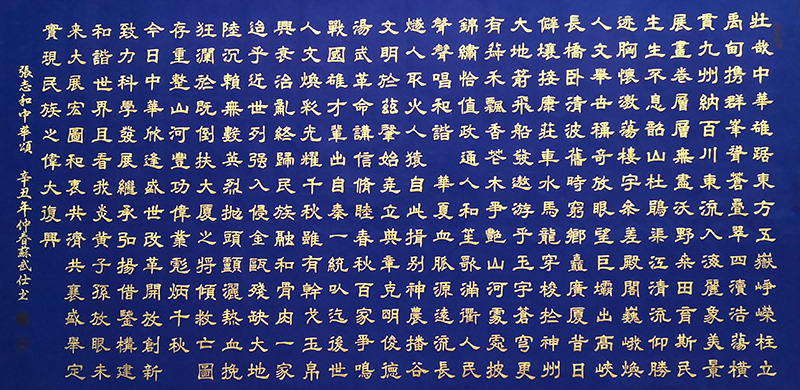 壯哉中華雄踞東方五嶽崢嶸柱立
禹甸攜群峯聳蒼疊翠四瀆浩蕩橫
貫九州納百川東流入海麗象美景
展畫卷層層無盡沃野桑田育斯民
生生不息韶山杜鵑渠江清流仰勝
迹胸懷激蕩樓宇參差殿閣巍峨煥
人文舉世稱奇放眼望巨壩出高峽
長橋臥清波舊時窮鄉矗廣廈昔日
僻壤接康莊車水馬龍穿梭於神州
大地蔚飛船發遨游乎玉宇蒼穹更
有禾飄香花木爭艷山河披
錦繡恰值政通人和笙歌滿衢人民
聲聲唱和諧 華夏血脈源遠流長
燧人取火人猿自此揖別神農播谷
文明於茲肇始堯立典章克明俊德
湯武革命講信脩睦春秋百家爭鳴
戰國雄才輩出自秦一統以迄後世
人文煥彩光耀千秋雖有幹戈玉帛
興衰治亂終歸民族融和骨肉一家
迨乎近世列强入侵金甌殘缺大地
陸沉賴無數英烈拋頭顱灑熱血挽
狂瀾於既倒扶大厦之將傾救亡圖
存重整山河豐功偉業彪炳千秋
今日中華欣逢盛世改革開放創新
致力科學發展繼承弘揚借鑒構建
和諧世界且看我炎黃子孫放眼未
來大展宏圖和衷共濟共襄盛舉定
實現民族之偉大復興
張志和中華頌 辛丑年仲春蘇武仕書